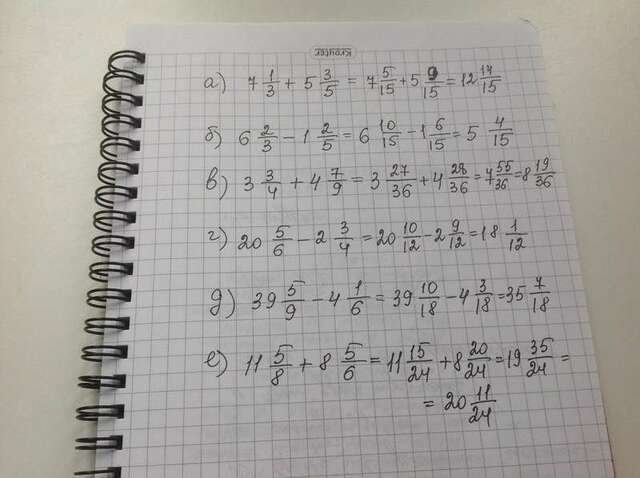 Kroyter
а) 7 1/3 + 5 3/5 = 7 5/15 + 5 9/15 = 12 14/15
б) 6 2/3 - 1 2/5 = 6 10/15 - 1 6/15 = 5 4/15
в) 3 3/4 + 4 7/9 = 3 27/36 + 4 28/36 = 7 55/36 = 8 19/36
г) 20 5/6 - 2 3/4 = 20 10/12 - 2 9/12 = 18 1/12
д) 39 5/9 - 4 1/6 = 39 10/18 - 4 3/18 = 35 7/18
е) 11 5/8 + 8 5/6 = 11 15/24 + 8 20/24 = 19 35/24 =
= 20 11/24